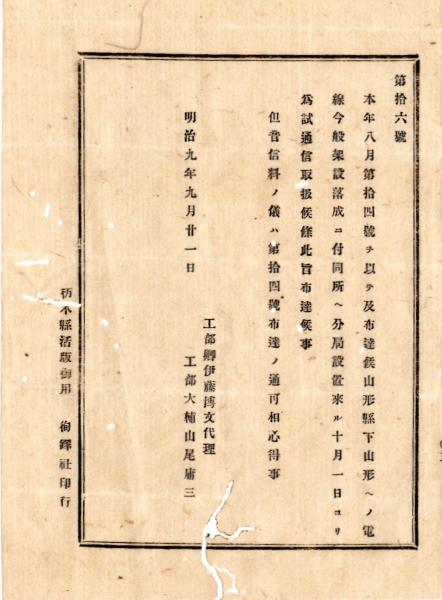 第拾六號
本年八月第拾四號ヲ以テ及布達候山形縣下山形ヘノ電
線今般架設落成ニ付同所ヘ分局設置來ル十月一日ヨリ
爲試通信取扱候條此旨布達候事
但音信料ノ儀ハ第拾四號布達ノ通可相心得事
明治九年九月廿一日
工部卿伊藤博文代理
工部大輔山尾庸三
栃木縣活版御用 徇鐸社印行